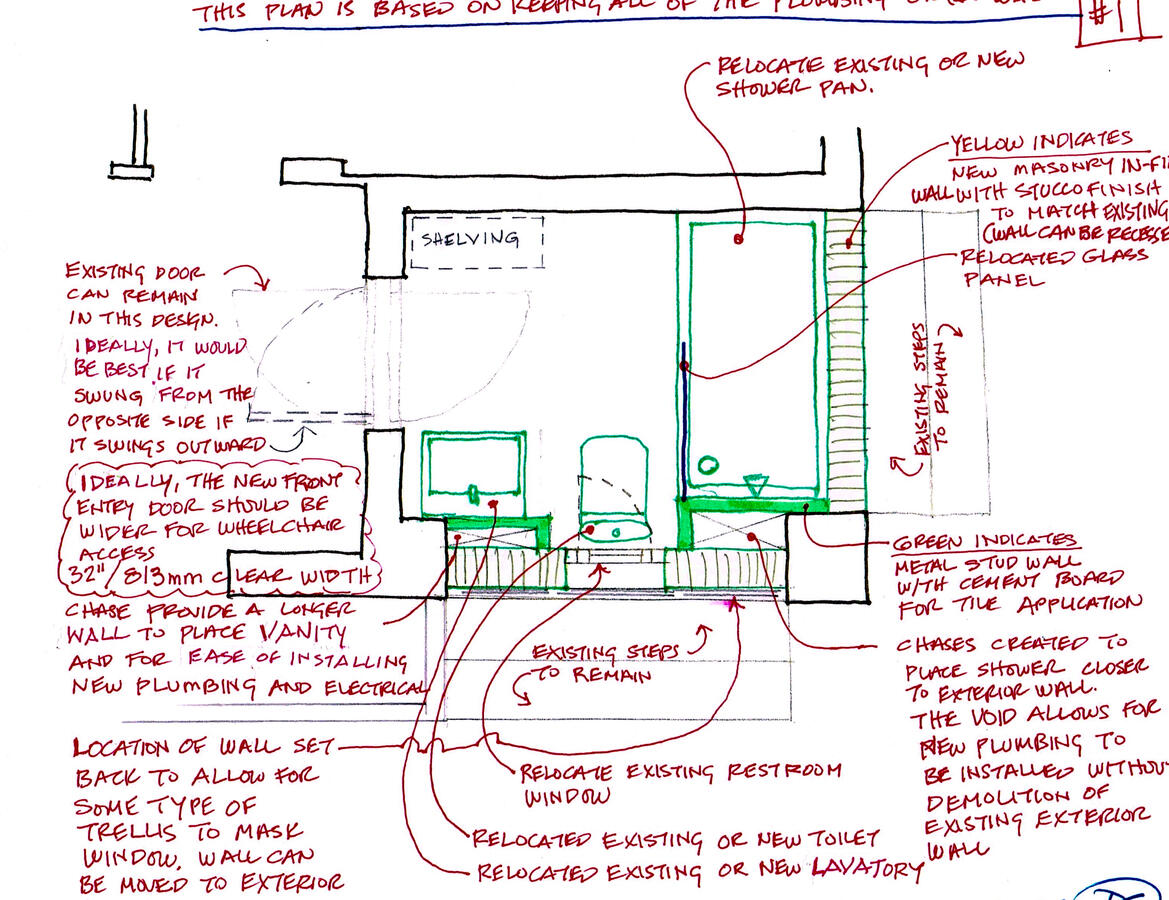 THIS PLAN IS BASED ON KEEPING ALL OF THE PLUMBING
#1
RELOCATE EXISTING OR NEW
SHOWER PAN.
YELLOW INDICATES
NEW MASONRY IN-FI
WALL WITH STUCCO FINISH
TO MATCH EXISTING
(WALL CAN BE RECESSE
RELOCATED GLASS
PANEL
SHELVING
EXISTING DOOR
CAN REMAIN
IN THIS DESIGN.
IDEALLY, IT WOULD
BE BEST IF IT
SWUNG FROM THE
OPPOSITE SIDE IF
IT SWINGS OUTWARD
EXISTING STEPS
TO REMAIN
IDEALLY, THE NEW FRONT
ENTRY DOOR SHOULD BE
WIDER FOR WHEELCHAIR
ACCESS
32"/813mm CLEAR WIDTH
GREEN INDICATES
METAL STUD WALL
WITH CEMENT BOARD
FOR TILE APPLICATION
CHASE PROVIDE A LONGER
WALL TO PLACE VANITY
AND FOR EASE OF INSTALLING
NEW PLUMBING AND ELECTRICAL
EXISTING STEPS
TO REMAIN
CHASES CREATED TO
PLACE SHOWER CLOSER
TO EXTERIOR WALL.
THE VOID ALLOWS FOR
NEW PLUMBING TO
BE INSTALLED WITHOU
DEMOLITION OF
EXISTING EXTERIOR
WALL
LOCATION OF WALL SET
BACK TO ALLOW FOR
SOME TYPE OF
TRELLIS TO MASK
WINDOW. WALL CAN
BE MOVED TO EXTERIOR
RELOCATE EXISTING RESTROOM
WINDOW
RELOCATED EXISTING OR NEW TOILET
RELOCATED EXISTING OR NEW LAVATORY